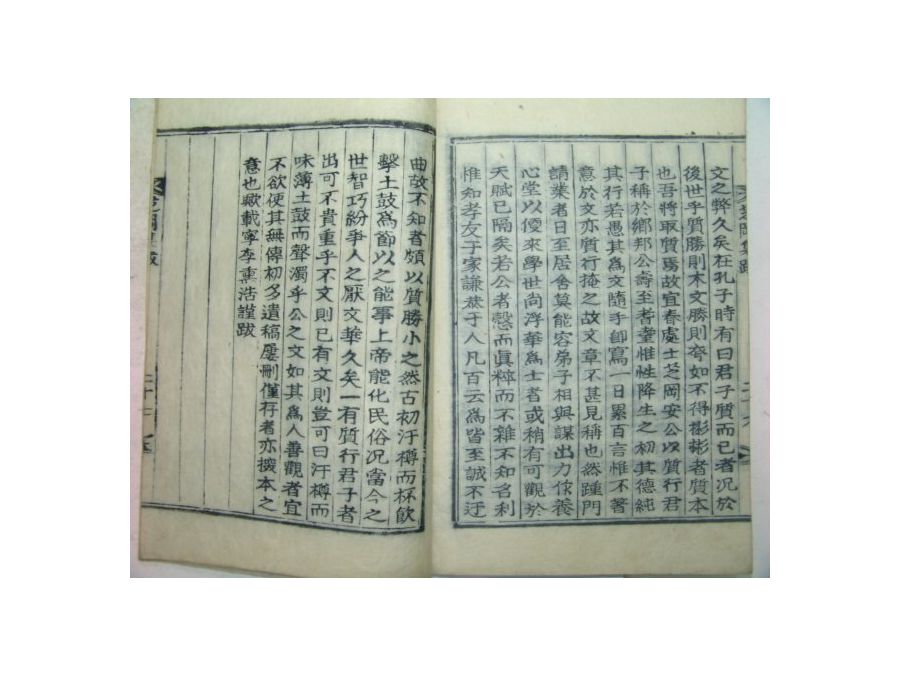 文之弊久矣在孔子時有曰君子質而已者況於
後世乎質勝則木文勝則奢如不得彬彬者質本
也吾將取質焉故宜春處士芝岡安公以質行君
子稱於鄉邦公壽至耆耋惟性降生之初其德純
其行若愚其為文隨手卽寫一日累百言惟不著
意於文亦質行掩之故文章不甚見稱也然踵門
請業者日至居舍莫能容弟子相與謀出力依養
心堂以優來學世尚浮華為士者或稍有可觀於
天賦已隔矣若公者愨而眞粹而不雜不知名利
惟知孝友于家謙恭于人凡百云為皆至誠不迂
曲故不知者頗以質勝小之然古初汙樽而杯飮
擊土鼓為節以之能事上帝能化民俗況當今之
世智巧紛爭人之厭文華久矣一有質行君子者
出可不貴重乎不文則已有文則豈可曰汙樽而
味薄土鼓而聲濁乎公之文如其為人善觀者宜
不欲使其無傳初多遺稿屢刪僅存者亦援本之
意也歟載寧李熏浩謹跋
芝岡集跋
二十六
二十七